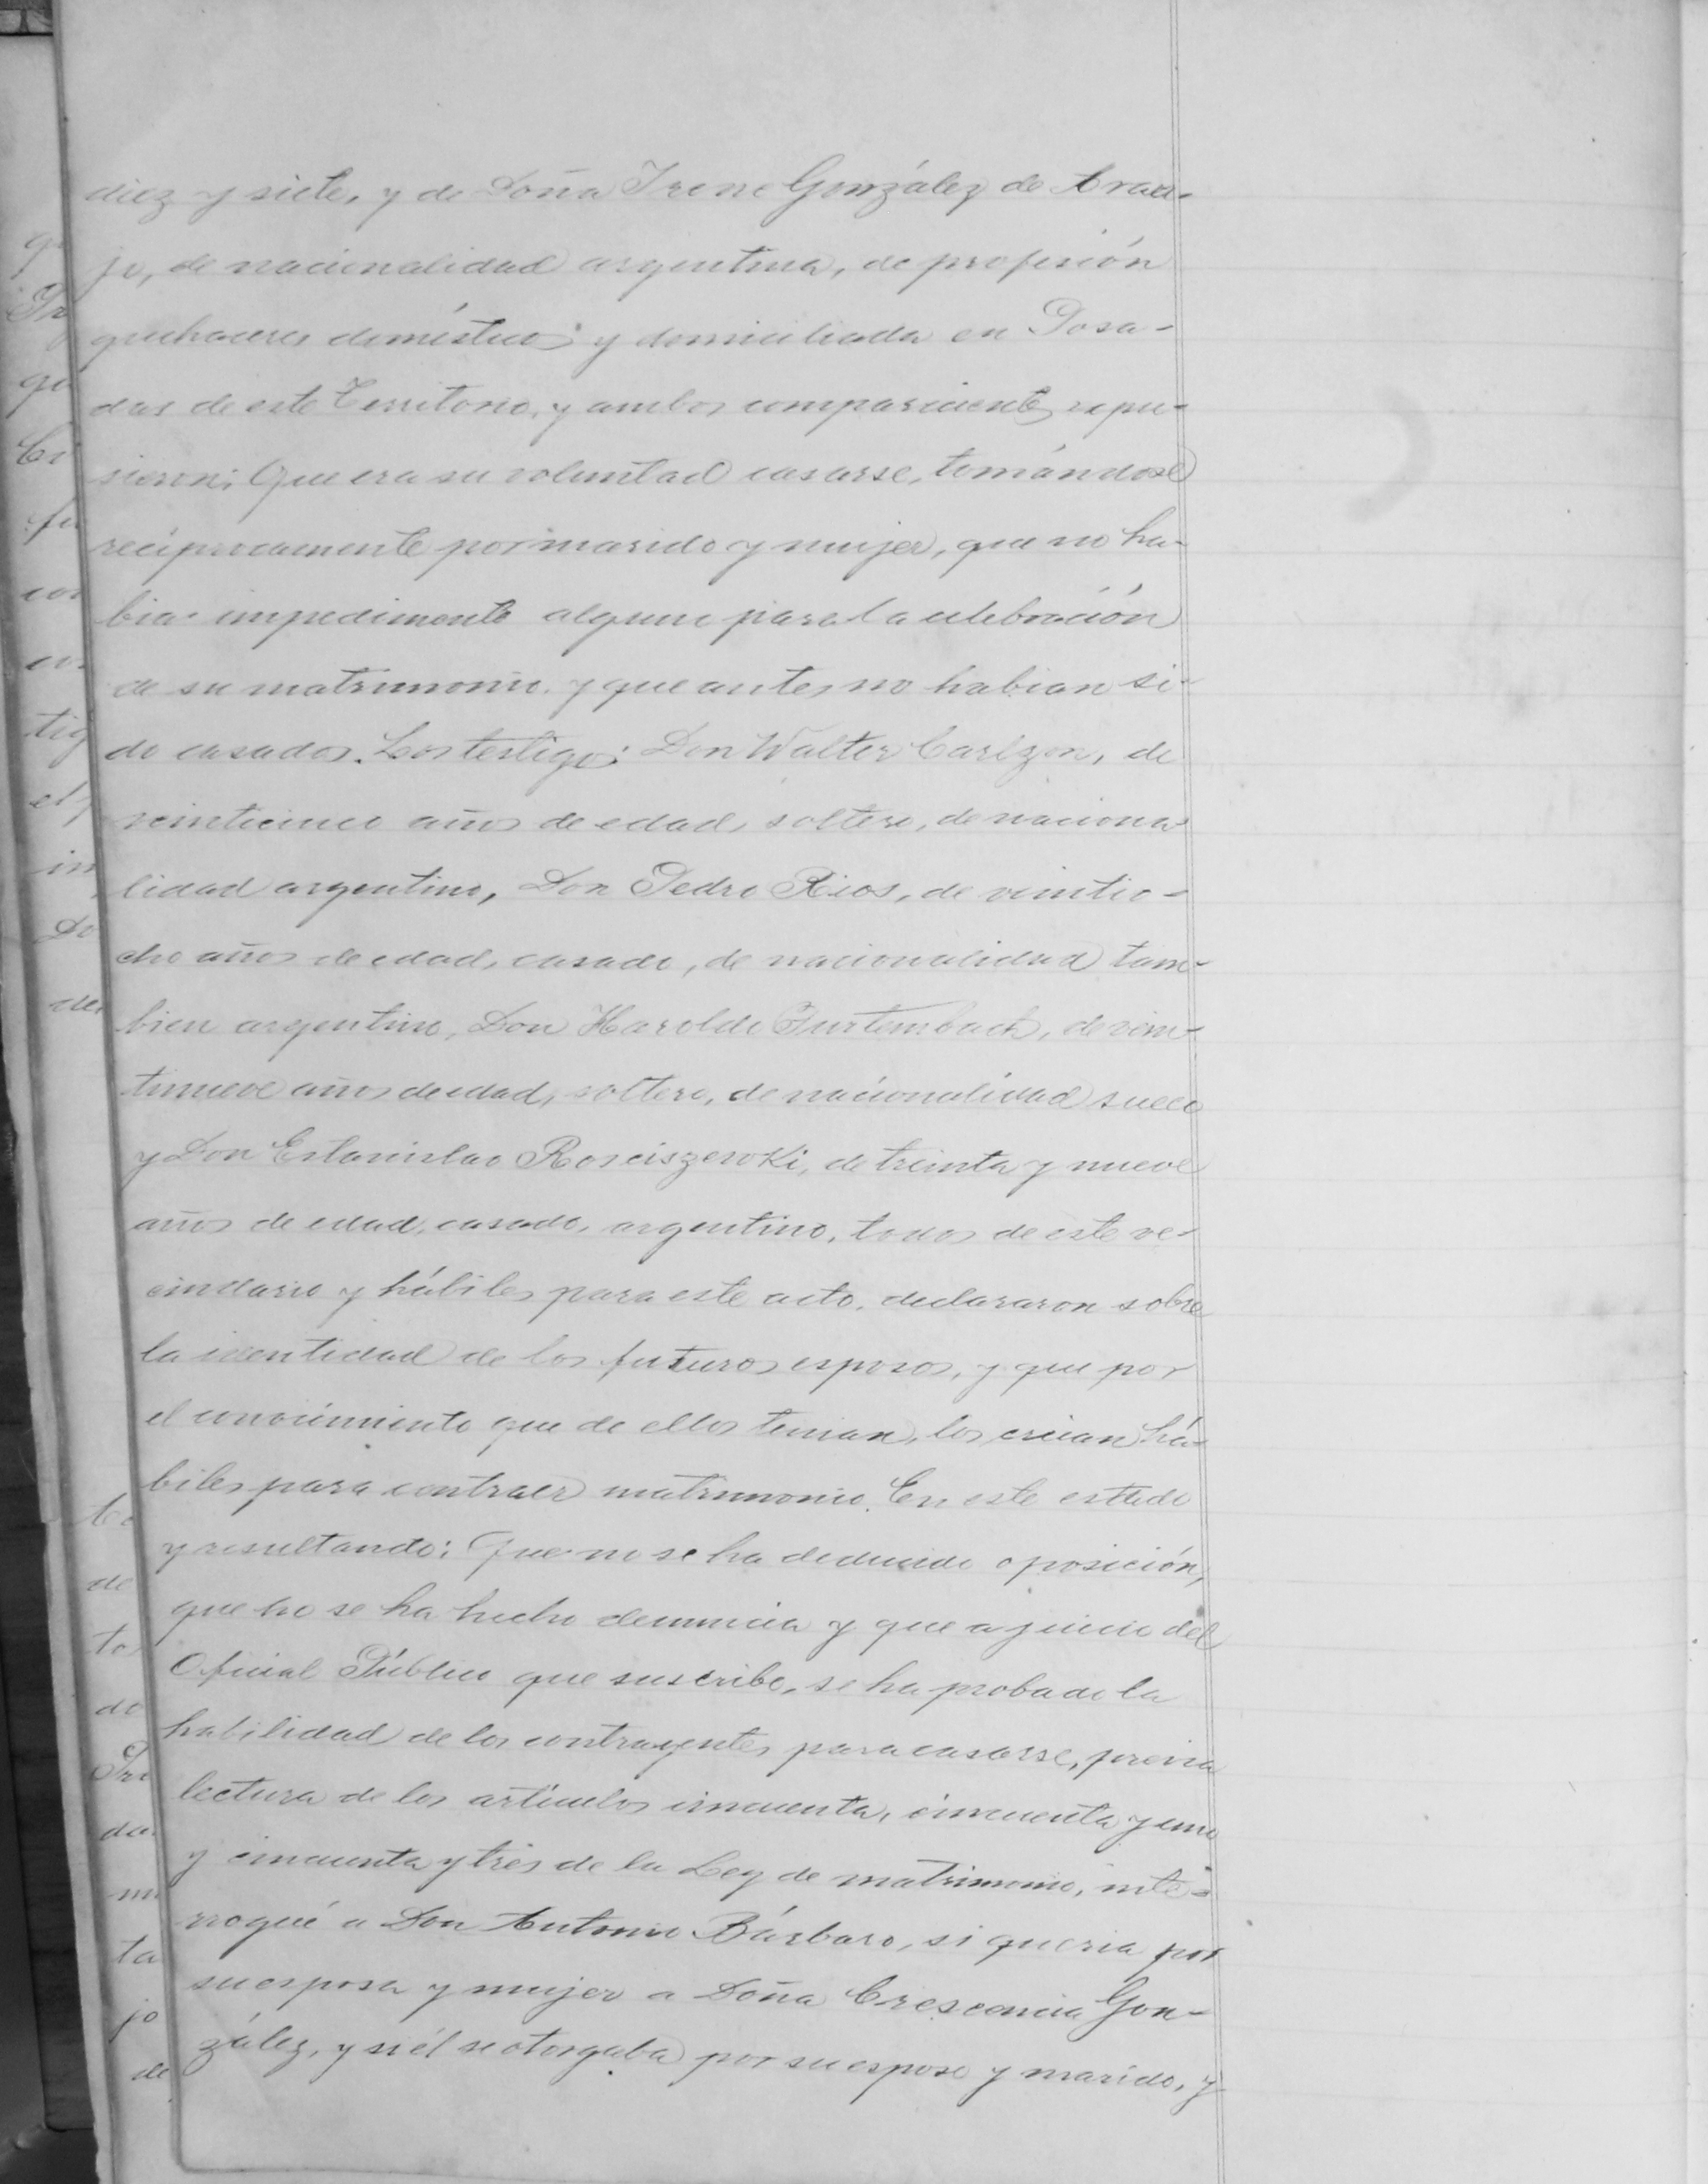 diez y siete, y de Doña Irene González de Arau-
jo, de nacionalidad argentina, de profesión
quehaceres domésticos y domiciliada en Posa-
das de este Territorio, y ambos comparecientes expu-
sieron: Que era su voluntad casarse, tomándose
recíprocamente por marido y mujer, que no ha-
bia impedimento alguno para la celebración
de su matrimonio y que antes no habian si-
do casados. Los testigos: Don Walter Carlzon, de
veinticinco años de edad, soltero, de naciona
lidad argentino, Don Pedro Rios, de veintio-
cho años de edad, casado, de nacionalidad tam-
bien argentino, Don Haroldo Furtembach, de vein-
tinueve años de edad, soltero, de nacionalidad sueco
y Don Estanislao Rosciszewski, de treinta y nueve
años de edad, casado, argentino, todos de este ve-
cindario y hábiles para este acto, declararon sobre
la identidad de los futuros esposos, y que por
el conocimiento que de ellos tenian, los creian há-
biles para contraer matrimonio. En este estado
y resultando: Que no se ha deducido oposición,
que no se ha hecho denuncia y que a juicio del
Oficial Público que suscribe, se ha probado la
habilidad de los contrayentes para casarse, previa
lectura de los artículos cincuenta, cincuenta y uno
y cincuenta y tres de la Ley de matrimonio, inte-
rrogué a Don Antonio Bárbaro, si queria por
su esposa y mujer a Doña Crescencia Gon-
zález, y si él se otorgaba por su esposo y marido, y